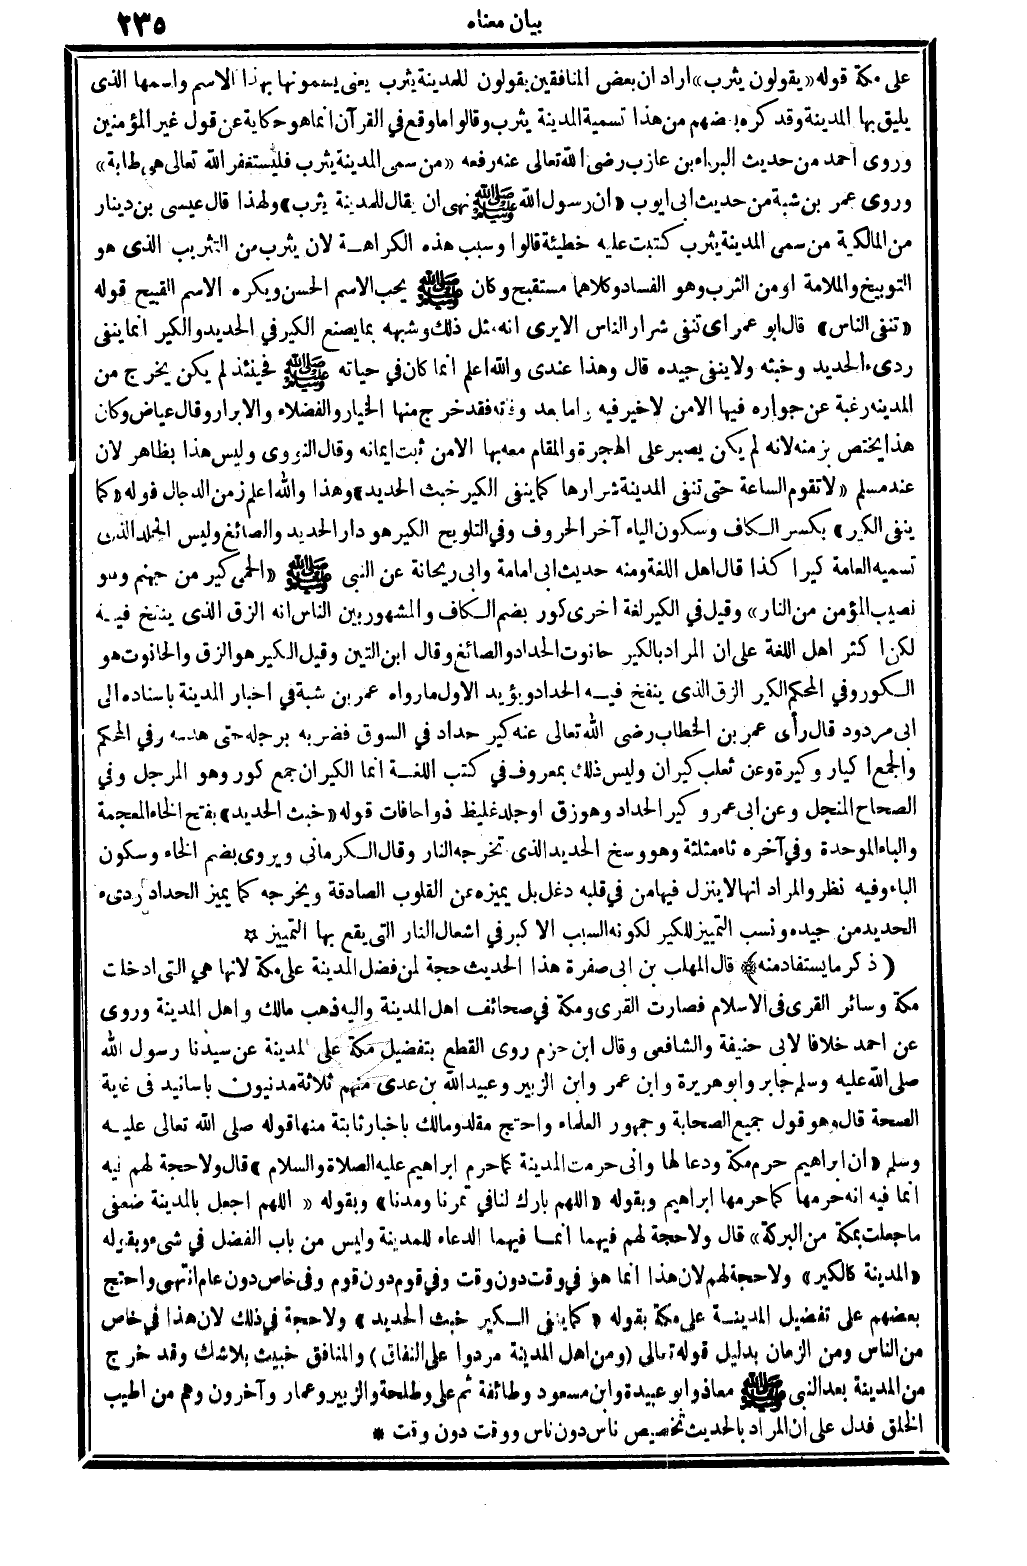 بيان معناه
٢٣٥
على مكة قوله «يقولون يثرب» اراد ان بعض المنافقين يقولون للمدينة يثرب يعنى يسمونها بهذا الاسم واسمها الذى
يليق بها المدينة وقد كره بعضهم من هذا تسمية المدينة يثرب وقالوا ما وقع في القرآن انما هو حكاية عن قول غير المؤمنين
وروى احمد من حديث البراء بن عازب رضى الله تعالى عنه رفعه «من سمى المدينة يثرب فليستغفر الله تعالى هى طابة»
وروى عمر بن شبة من حديث ابى ايوب «ان رسول الله ﷺ نهى ان يقال للمدينة يثرب» ولهذا قال عيسى بن دينار
من المالكية من سمى المدينة يثرب كتبت عليه خطيئة قالوا وسبب هذه الكراهــة لان يثرب من التثريب الذى هو
التوبيخ والملامة او من الثرب وهو الفساد وكلاهما مستقبح وكان ﷺ يحب الاسم الحسن ويكره الاسم القبيح قوله
«تنفى الناس» قال ابو عمر اى تنفى شرار الناس الا يرى انه مثل ذلك وشبهه بما يصنع الكير في الحديد والكير انما ينفى
ردىء الحديد وخبثه ولا ينفى جيده قال وهذا عندى والله اعلم انما كان في حياته ﷺ فحينئذ لم يكن يخرج من
المدينه رغبة عن جواره فيها الا من لا خير فيه واما بعد وفاته فقد خرج منها الخيار والفضلاء والابرار وقال عياض وكان
هذا يختص بزمنه لانه لم يكن يصبر على الهجرة والمقام معه بها الا من ثبت ايمانه وقال النووى وليس هذا بظاهر لان
عند مسلم «لا تقوم الساعة حتى تنفى المدينة شرارها كما ينفى الكير خبث الحديد» وهذا والله اعلم زمن الدجال قوله «كما
ينفى الكير» بكسر الكاف وسكون الياء آخر الحروف وفي التلويح الكير هو دار الحديد والصائغ وليس الجلد الذى
تسميه العامة كيرا كذا قال اهل اللغة ومنه حديث ابى امامة وابى ريحانة عن النبى ﷺ «الحمى كير من جهنم وهو
نصيب المؤمن من النار» وقيل في الكير لغة اخرى كور بضم الكاف والمشهور بين الناس انه الزق الذى ينفخ فيــه
لكن اكثر اهل اللغة على ان المراد بالكير حانوت الحداد والصائغ وقال ابن التين وقيل الكير هو الزق والحانوت هو
الكور وفي المحكم الكير الزق الذى ينفخ فيــه الحداد ويؤيد الاول ما رواه عمر بن شبة في اخبار المدينة باسناده الى
ابى مردود قال رأى عمر بن الخطاب رضى الله تعالى عنه كير حداد في السوق فضربه برجله حتى هدمه وفي المحكم
والجمع اكيار وكيرة وعن ثعلب كيران وليس ذلك بمعروف في كتب اللغــة انما الكيران جمع كور وهو المرجل وفي
الصحاح المنجل وعن ابى عمرو كير الحداد وهو زق او جلد غليظ ذو احافات قوله «خبث الحديد» بفتح الخاء المعجمة
والباء الموحدة وفي آخره ثاء مثلثة وهو وسخ الحديد الذى تخرجه النار وقال الكرمانى ويروى بضم الخاء وسكون
الباء وفيه نظر والمراد انها لا ينزل فيها من في قلبه دغل بل يميزه عن القلوب الصادقة ويخرجه كما يميز الحداد ردىء
الحديد من جيده ونسب التمييز للكير لكونه السبب الاكبر في اشعال النار التى يقع بها التمييز ✩
(ذكر ما يستفاد منه) قال المهلب بن ابى صفرة هذا الحديث حجة لمن فضل المدينة على مكة لانها هي التى ادخلت
مكة وسائر القرى فى الاسلام فصارت القرى ومكة في صحائف اهل المدينة واليه ذهب مالك واهل المدينة وروى
عن احمد خلافا لابى حنيفة والشافعى وقال ابن حزم روى القطع بتفضيل مكة على المدينة عن سيدنا رسول الله
صلى الله عليه وسلم جابر وابو هريرة وابن عمر وابن الزبير وعبيد الله بن عدى منهم ثلاثة مدنيون باسانيد فى غاية
الصحة قال وهو قول جميع الصحابة وجمهور العلماء واحتج مقلدو مالك باخبار ثابتة منها قوله صلى الله تعالى عليــه
وسلم «ان ابراهيم حرم مكة ودعا لها وانى حرمت المدينة كما حرم ابراهيم عليه الصلاة والسلام» قال ولا حجة لهم فيه
انما فيه انه حرمها كما حرمها ابراهيم وبقوله «اللهم بارك لنا في تمرنا ومدنا» وبقوله «اللهم اجعل بالمدينة ضعفى
ما جعلت بمكة من البركة» قال ولا حجة لهم فيهما انمــا فيهما الدعاء للمدينة وليس من باب الفضل في شىء وبقوله
«المدينة كالكير» ولا حجة لهم لان هذا انما هو في وقت دون وقت وفي قوم دون قوم وفى خاص دون عام انتهى واحتج
بعضهم على تفضيل المدينــة على مكة بقوله «كما ينفى الــكير خبث الحديد» ولا حجة في ذلك لان هذا في خاص
من الناس ومن الزمان بدليل قوله تعالى (ومن اهل المدينة مردوا على النفاق) والمنافق خبيث بلا شك وقد خرج
من المدينة بعد النبى ﷺ معاذ وابو عبيدة وابن مسعود وطائفة ثم على وطلحة والزبير وعمار وآخرون وهم من اطيب
الخلق فدل على ان المراد بالحديث تخصيص ناس دون ناس ووقت دون وقت *